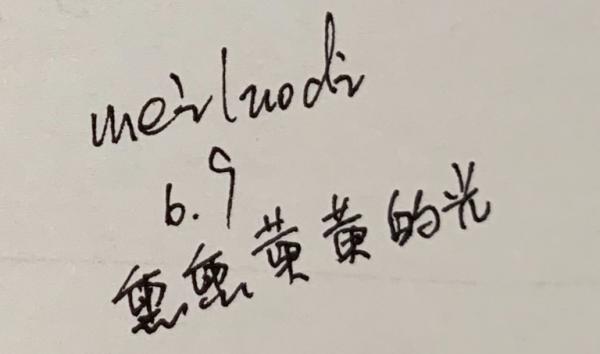 meiluodi
6.9
熏熏黄黄的光